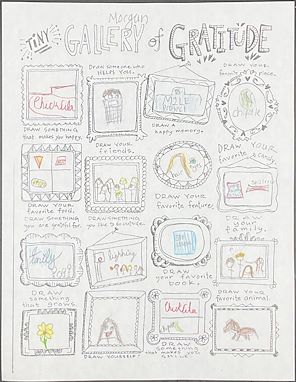 Morgan
TINY GALLERY of GRATITUDE
DRAW SOMEONE WHO
HELPS YOU.
DRAW YOUR
favorite place.
Chick-fil-a
DRAW SOMETHING
that makes you happy.
DRAW A
happy memory.
DRAW YOUR
friends.
DRAW YOUR
favorite candy.
DRAW YOUR
favorite food.
DRAW YOUR
favorite feature.
DRAW SOMETHING
you are grateful for.
DRAW SOMETHING
you like to do outside.
DRAW
your
family.
family
DRAW
something
that grows.
DRAW
your favorite
book.
DRAW YOUR
favorite animal.
Chick-fil-a
DRAW YOURSELF!
DRAW
something
that makes you
smile